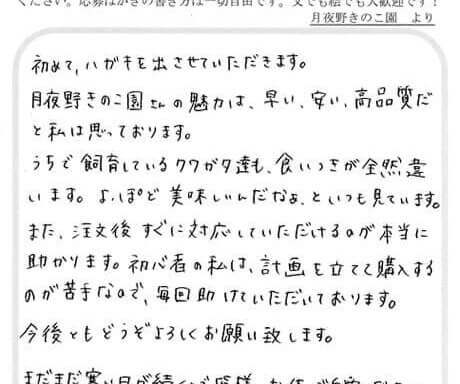 ください。応募はがきの書き方は一切自由です。文でも絵でも大歓迎です！
月夜野きのこ園　より
初めて、ハガキを出させていただきます。
月夜野きのこ園さんの魅力は、早い、安い、高品質だ
と私は思っております。
うちで飼育しているクワガタ達も、食いつきが全然違
います。よっぽど美味しいんだなぁ、といつも見ています。
また、注文後すぐに対応していただけるのが本当に
助かります。初心者の私は、計画を立てて購入する
のが苦手なので、毎回助けていただいております。
今後ともどうぞよろしくお願い致します。
まだまだ寒い日が続く